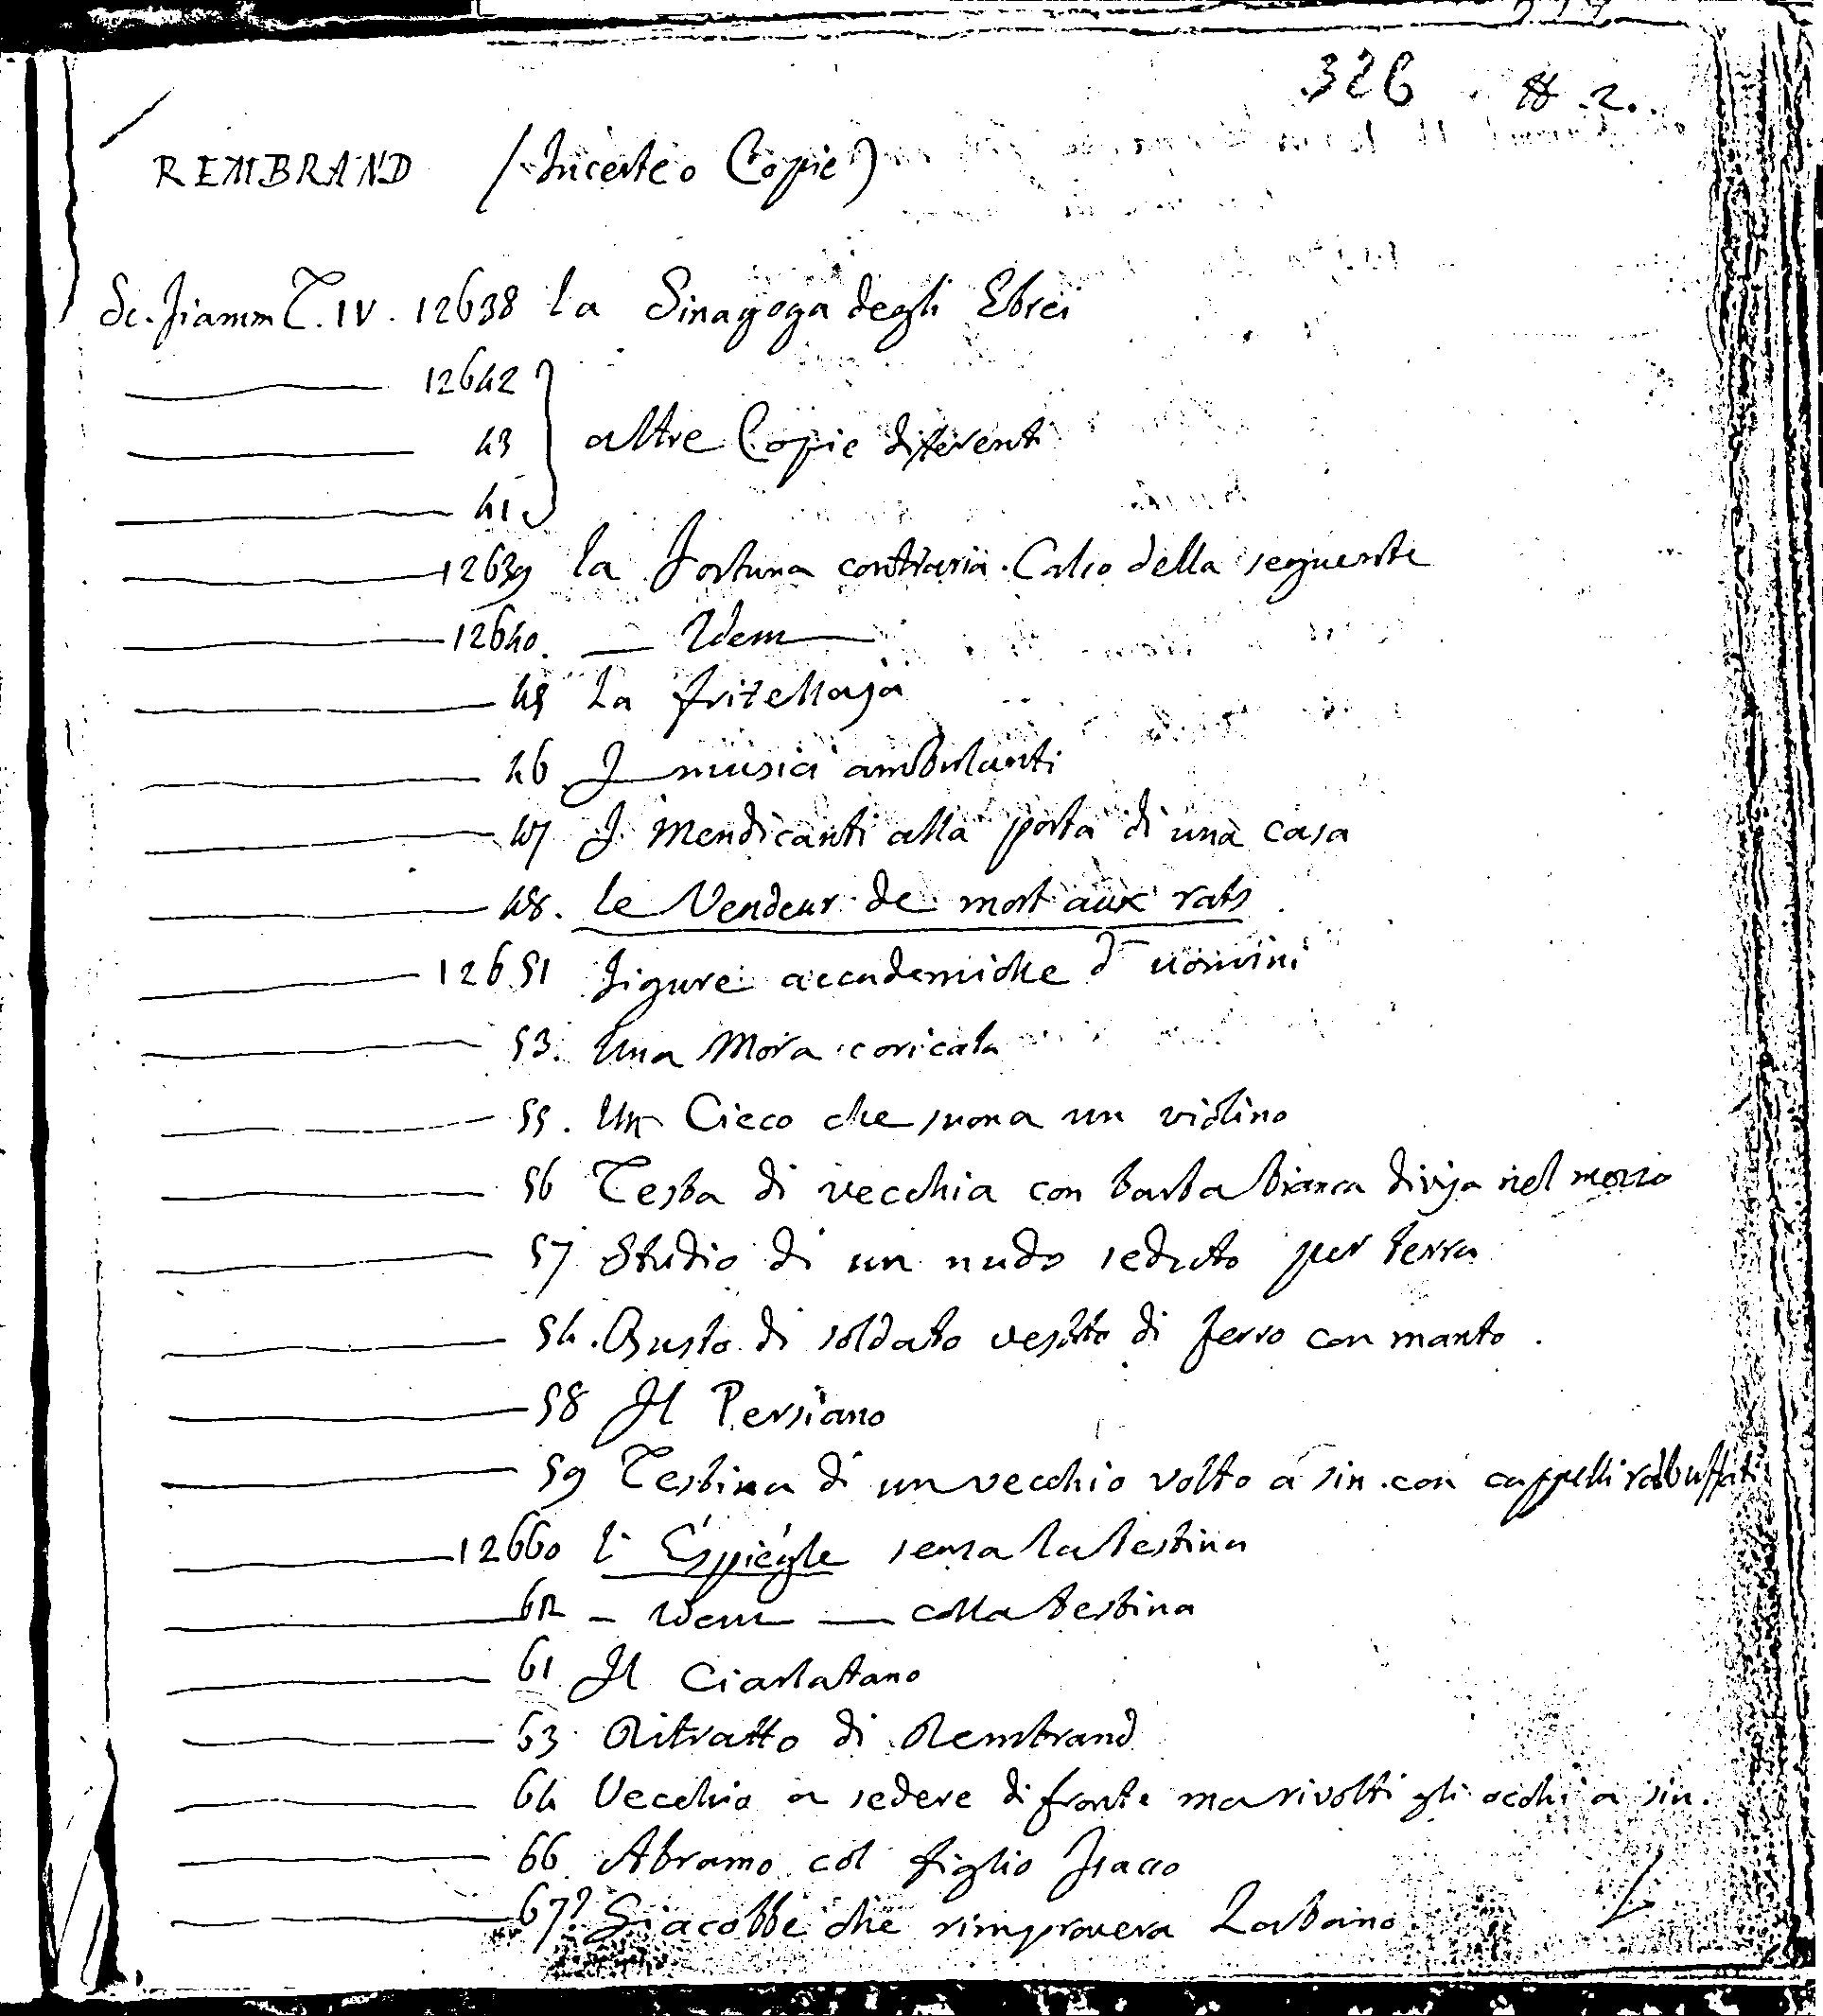 326 # 2.
REMBRAND (Incerte o Copie)
Sc. Fiamm T. IV. 12638 La Sinagoga degli Ebrei
12642
43 altre Copie differenti
41
12639 la Fortuna contraria. Calco della seguente
12640. — Idem —
45 La fritellaja
46 I musici ambulanti
47 I Mendicanti alla porta di una casa
48. Le Vendeur de mort aux rats
12651 Figure accademiche d'uomini
53. Una Mora coricata
55. Un Cieco che suona un violino
56 Testa di vecchia con barba bianca divisa nel mezzo
57 Studio di un nudo seduto per terra
54. Busto di soldato vestito di ferro con manto.
58 Il Persiano
59 Testina di un vecchio volto a sin. con cappelli rabbuffati
12660 l'Éspiégle senza la testina
62 - Idem — colla testina
61 Il Ciarlatano
63 Ritratto di Rembrand
64 Vecchia a sedere di fronte ma rivolti gli occhi a sin.
66 Abramo col figlio Isacco
67? Giacobbe che rimprovera Labano